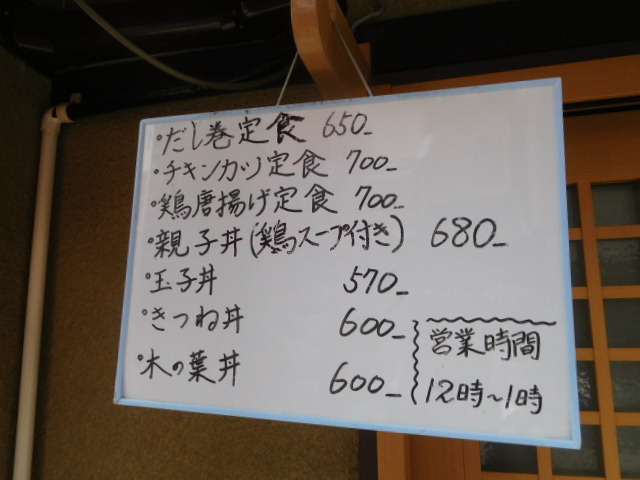 ・だし巻定食 650-
・チキンカツ定食 700-
・鶏唐揚げ定食 700-
・親子丼(鶏スープ付き) 680-
・玉子丼 570-
・きつね丼 600-
・木の葉丼 600-
営業時間
12時~1時